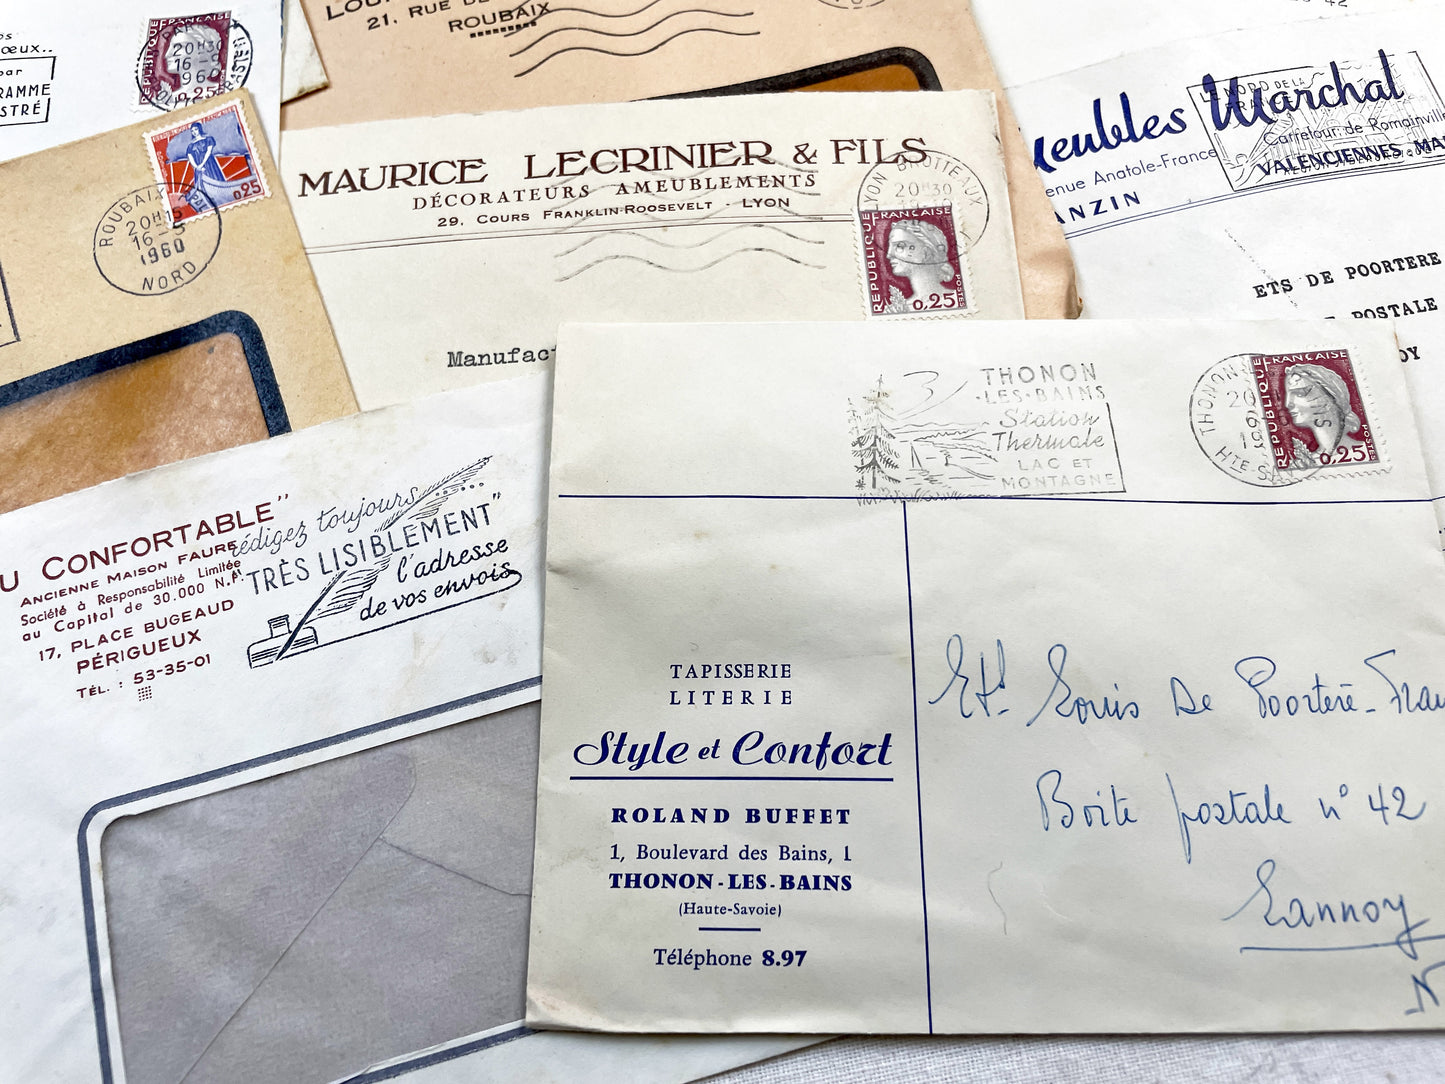 RÉPUBLIQUE FRANÇAISE
20H30
16-9
1960
0,25
ŒUX..
par
RAMME
STRÉ
21, RUE
ROUBAIX
ROUBAIX
20H15
16-5
1960
NORD
0,25
MAURICE LECRINIER & FILS
DÉCORATEURS AMEUBLEMENTS
29, COURS FRANKLIN-ROOSEVELT - LYON
LYON BROTTEAUX
20H30
RÉPUBLIQUE FRANÇAISE
0,25
POSTES
Manufac
Meubles Marchal
LE NORD DE LA
Carrefour de Romainville
enue Anatole-France
VALENCIENNES
ANZIN
ETS DE POORTERE
POSTALE
OY
U CONFORTABLE"
ANCIENNE MAISON FAURE
Société à Responsabilité Limitée
au Capital de 30.000 N.F.
17, PLACE BUGEAUD
PÉRIGUEUX
TÉL. : 53-35-01
rédigez toujours
"TRÈS LISIBLEMENT"
l'adresse
de vos envois
THONON
-LES-BAINS
Station
Thermale
LAC ET
MONTAGNE
THONON
HTE-SA
RÉPUBLIQUE FRANÇAISE
0,25
POSTES
TAPISSERIE
LITERIE
Style et Confort
ROLAND BUFFET
1, Boulevard des Bains, 1
THONON-LES-BAINS
(Haute-Savoie)
Téléphone 8.97
Ets. Louis De Poortere-Frau
Boite postale n° 42
Lannoy
N